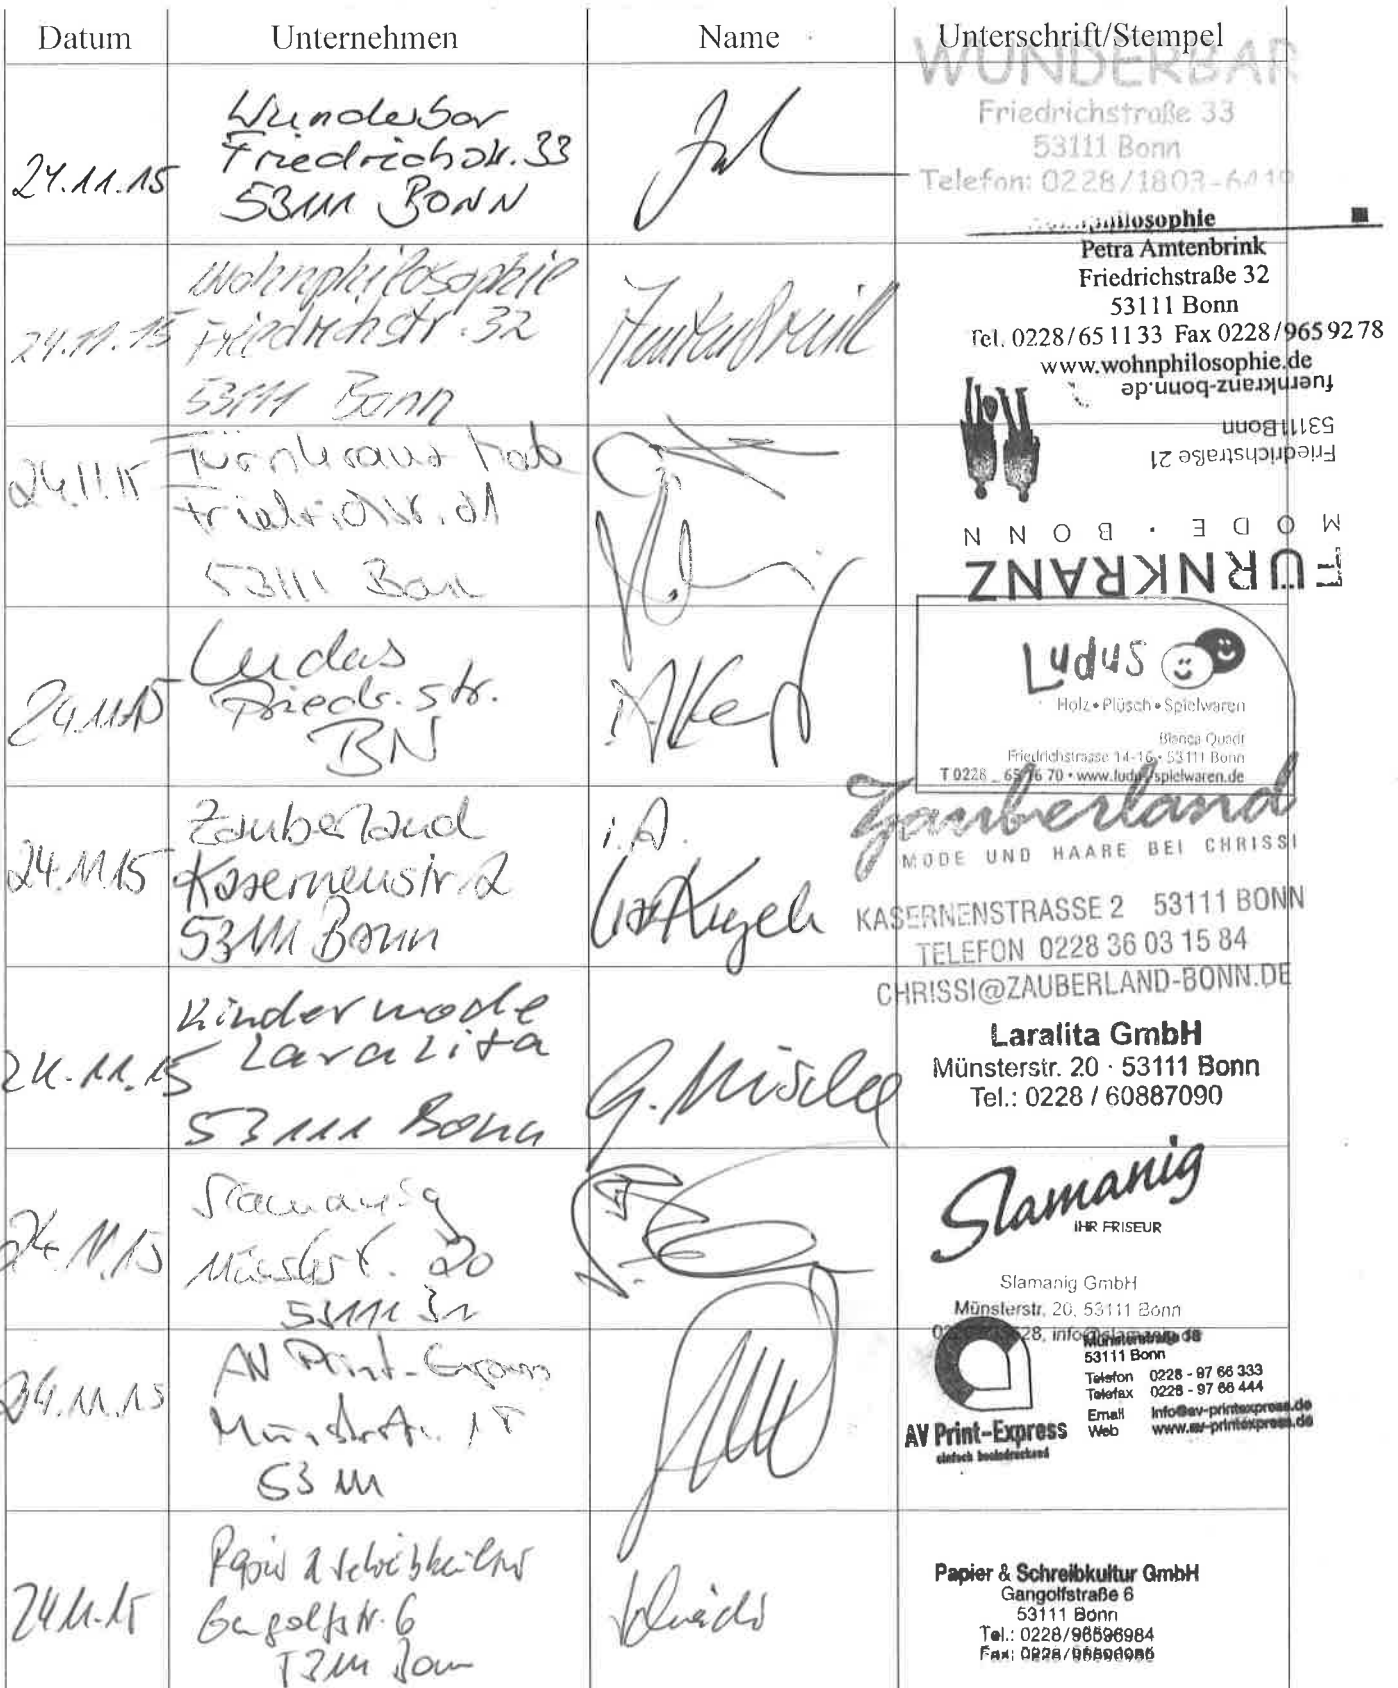 Datum Unternehmen Name Unterschrift/Stempel
24.11.15
Wunderbar
Friedrichstr. 33
53111 BONN
WUNDERBAR
Friedrichstraße 33
53111 Bonn
Telefon: 0228/1803-6419
24.11.15
Wohnphilosophie
Friedrichstr. 32
53111 Bonn
Amtenbrink
Petra Amtenbrink
Friedrichstraße 32
53111 Bonn
Tel. 0228/65 11 33 Fax 0228/965 92 78
www.wohnphilosophie.de
24.11.15
53111 Bonn
FÜRNKRANZ
MODE · BONN
Friedrichstraße 21
53111 Bonn
fuernkranz-bonn.de
24.11.15
Ludus
Friedr. str.
BN
Ludus
Holz • Plüsch • Spielwaren
Bianca Quadt
Friedrichstrasse 14-16 • 53111 Bonn
T 0228 _ 65 76 70 • www.ludus-spielwaren.de
24.11.15
Zauberland
Kasernenstr. 2
53111 Bonn
i.A.
Zauberland
MODE UND HAARE BEI CHRISSI
KASERNENSTRASSE 2 53111 BONN
TELEFON 0228 36 03 15 84
CHRISSI@ZAUBERLAND-BONN.DE
24.11.15
Kindermode
Laralita
53111 Bonn
Laralita GmbH
Münsterstr. 20 · 53111 Bonn
Tel.: 0228 / 60887090
24.11.15
Slamanig
Münsterstr. 20
53111 Bn
Slamanig
IHR FRISEUR
Slamanig GmbH
Münsterstr. 20, 53111 Bonn
24.11.15
AV Print-Express
53111
Münsterstraße 18
53111 Bonn
Telefon 0228 - 97 66 333
Telefax 0228 - 97 66 444
Email info@av-printexpress.de
Web www.av-printexpress.de
AV Print-Express
einfach beeindruckend
24.11.15
Papier & Schreibkultur
Gangolfstr. 6
53111 Bonn
Papier & Schreibkultur GmbH
Gangolfstraße 6
53111 Bonn
Tel.: 0228/96596984